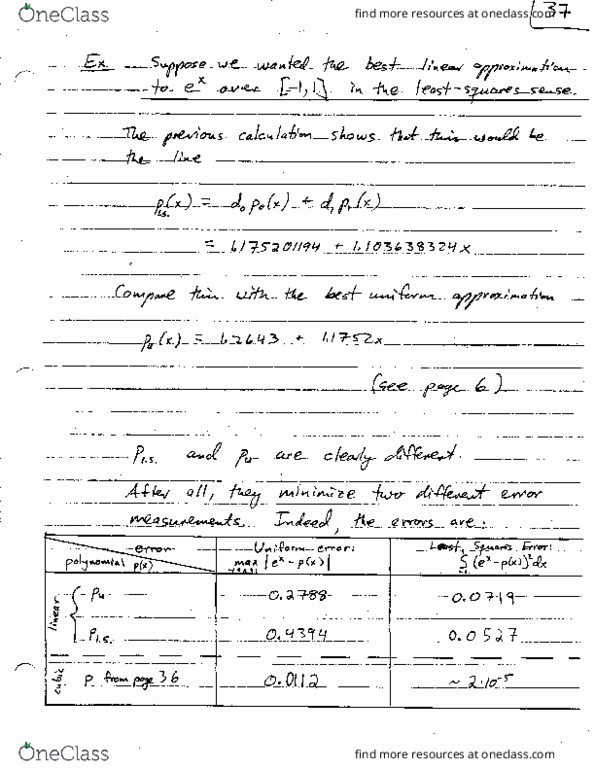 OneClass
find more resources at oneclass.com
37
Ex. Suppose we wanted the best linear approximation
to e^x over [-1,1] in the least-squares sense.
The previous calculation shows that this would be
the line
p_{l.s.}(x) = d_0 p_0(x) + d_1 p_1(x)
= 1.175201194 + 1.103638324x
Compare this with the best uniform approximation
p_u(x) = 1.2643 + 1.1752x
(see page 6)
P_{l.s.} and p_u are clearly different.
After all, they minimize two different error
measurements. Indeed, the errors are:
error
polynomial p(x)
Uniform error:
max |e^x - p(x)|
Least Squares Error:
∫(e^x - p(x))^2 dx
linear
p_u
0.2788
0.0719
P_{l.s.}
0.4394
0.0527
cubic
P from page 36
0.0112
~ 2·10^-5
OneClass
find more resources at oneclass.com